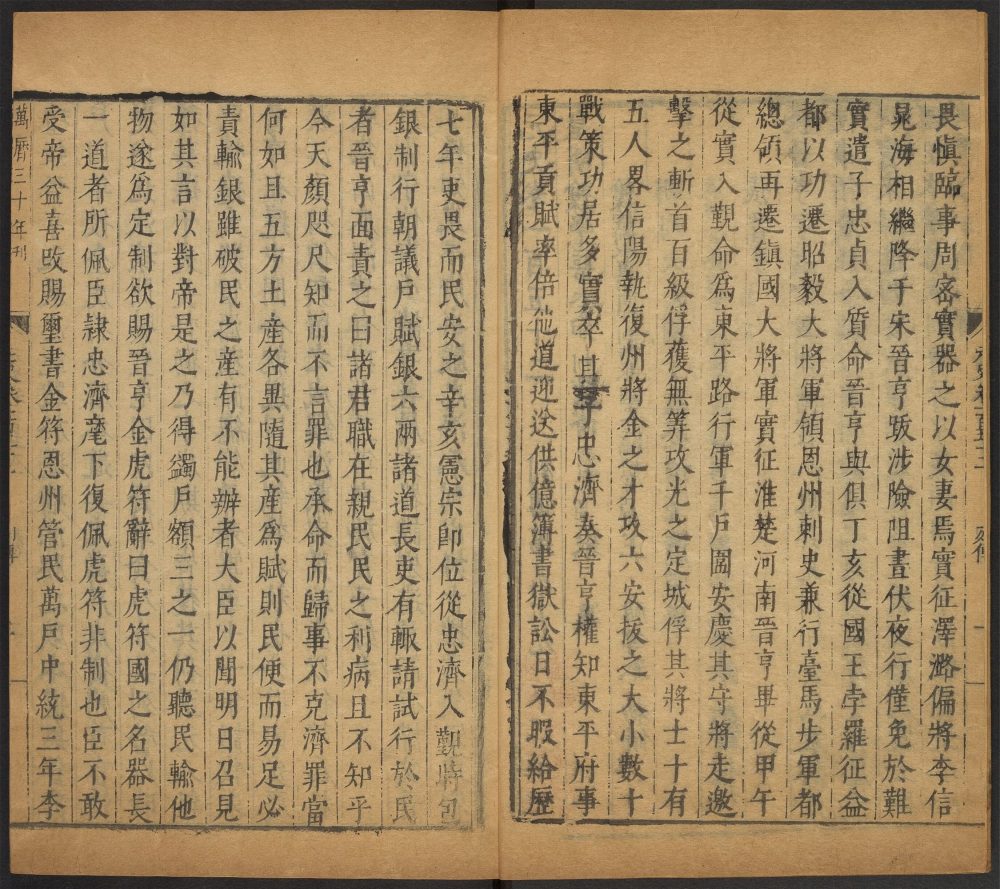 畏慎臨事周密實器之以女妻焉實征澤潞偏將李信
晁海相繼降于宋晉亨跋涉險阻晝伏夜行僅免於難
實遣子忠貞入質命晉亨與俱丁亥從國王孛羅征益
都以功遷昭毅大將軍領恩州刺史兼行臺馬步軍都
總領再遷鎮國大將軍實征淮楚河南晉亨畢從甲午
從實入覲命爲東平路行軍千戶圍安慶其守將走邀
擊之斬首百級俘獲無筭攻光之定城俘其將士十有
五人畧信陽執復州將金之才攻六安拔之大小數十
戰策功居多實卒其子忠濟奏晉亨權知東平府事
東平貢賦率倍他道迎送供億簿書獄訟日不暇給歷
七年吏畏而民安之辛亥憲宗卽位從忠濟入覲時包
銀制行朝議戶賦銀六兩諸道長吏有輒請試行於民
者晉亨面責之曰諸君職在親民民之利病且不知乎
今天顏咫尺知而不言罪也承命而歸事不克濟罪當
何如且五方土産各異隨其產爲賦則民便而易足必
責輸銀雖破民之産有不能辦者大臣以聞明日召見
如其言以對帝是之乃得蠲戶額三之一仍聽民輸他
物遂爲定制欲賜晉亨金虎符辭曰虎符國之名器長
一道者所佩臣隷忠濟麾下復佩虎符非制也臣不敢
受帝益喜改賜璽書金符恩州管民萬戶中統三年李
萬曆三十年刊